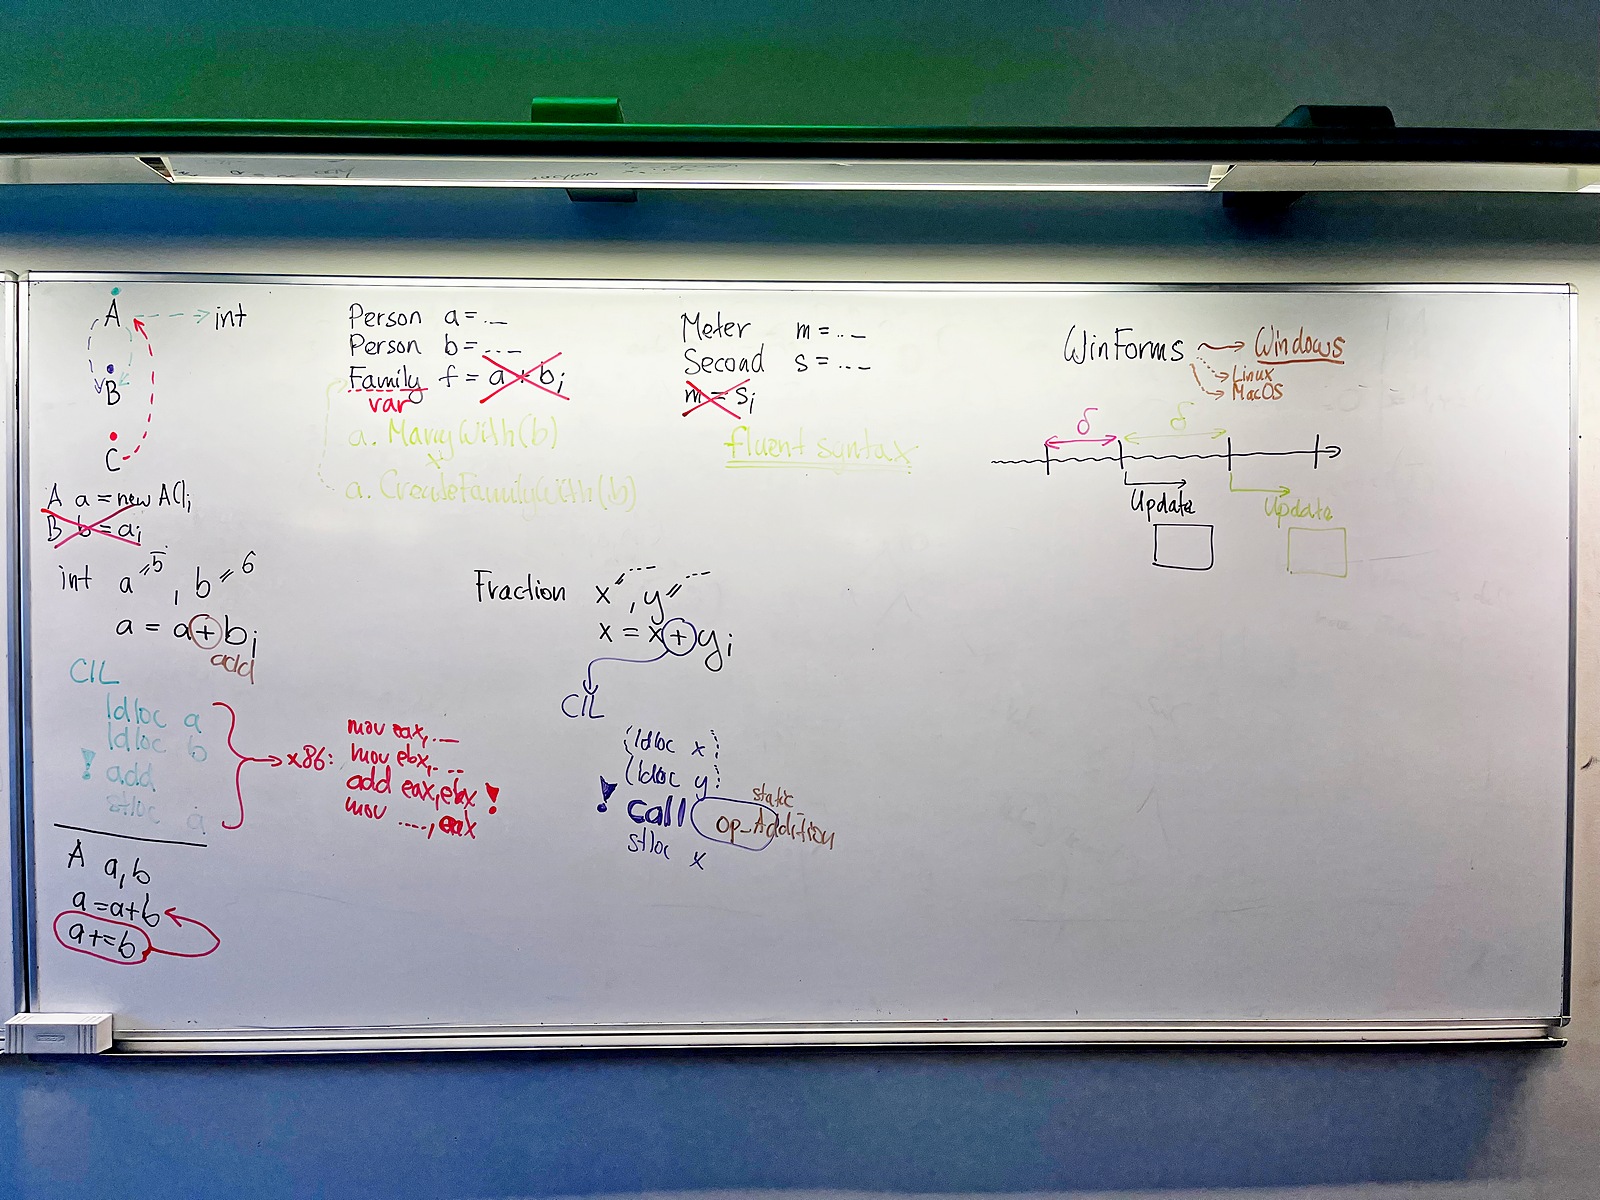 A int
B
C
A a = new A();
B b = a;
int a = 5, b = 6
a = a + b;
add
CIL
ldloc a
ldloc b
! add
stloc a
x86:
mov eax, ...
mov ebx, ...
add eax, ebx !
mov ...., eax
A a, b
a = a + b
a += b
Person a = ...
Person b = ....
Family f = a + b;
var
a. MarryWith(b)
a. CreateFamilyWith(b)
Meter m = ...
Second s = ...
m = s;
fluent syntax
Fraction x = ..., y = ...
x = x + y;
CIL
(ldloc x)
(ldloc y)
! call op_Addition
static
stloc x
WinForms Windows
Linux
MacOS
δ δ
Update Update